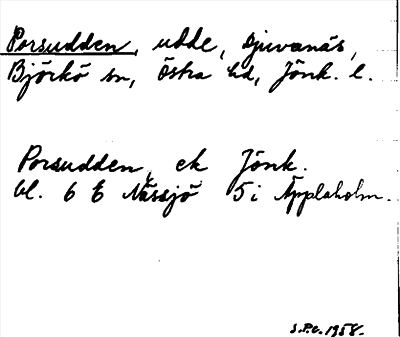 Porsudden, udde, Djuvanäs,
Björkö sn, Östra hd, Jönk. l.
Porsudden, ek Jönk.
bl. 6 E Nässjö 5 i Äpplaholm.
S.P.C. 1958.